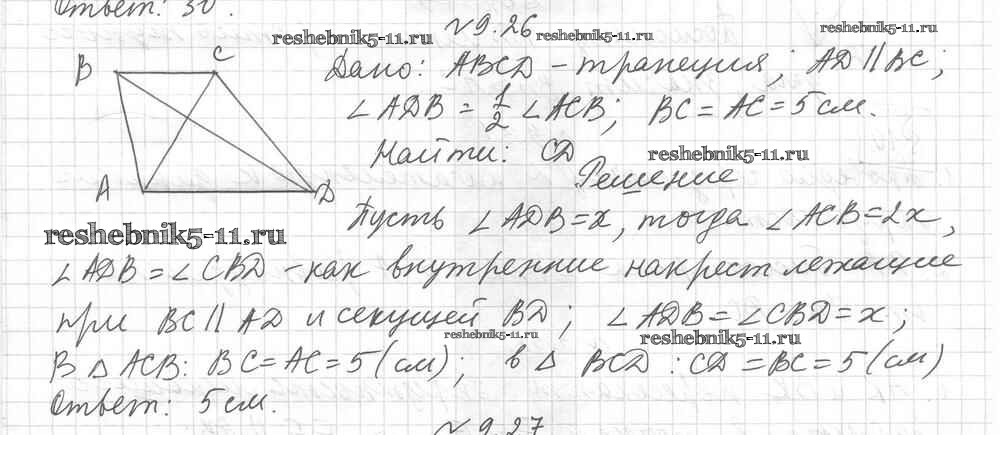 Ответ: 30°.
№ 9.26
reshebnik5-11.ru reshebnik5-11.ru reshebnik5-11.ru
B C
Дано: ABCD - трапеция; AD ∥ BC;
∠ADB = 1/2 ∠ACB; BC = AC = 5 см.
Найти: CD
reshebnik5-11.ru
Решение
A D
Пусть ∠ADB = x, тогда ∠ACB = 2x,
reshebnik5-11.ru
∠ADB = ∠CBD - как внутренние накрест лежащие
при BC ∥ AD и секущей BD; ∠ADB = ∠CBD = x;
reshebnik5-11.ru reshebnik5-11.ru
В △ ACB: BC = AC = 5 (см); в △ BCD: CD = BC = 5 (см)
Ответ: 5 см.
№ 9.27